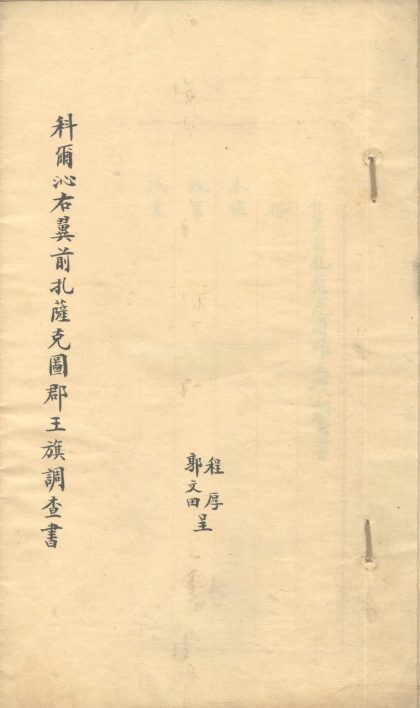 科爾沁右翼前扎薩克圖郡王旗調查書
程厚
郭文田呈